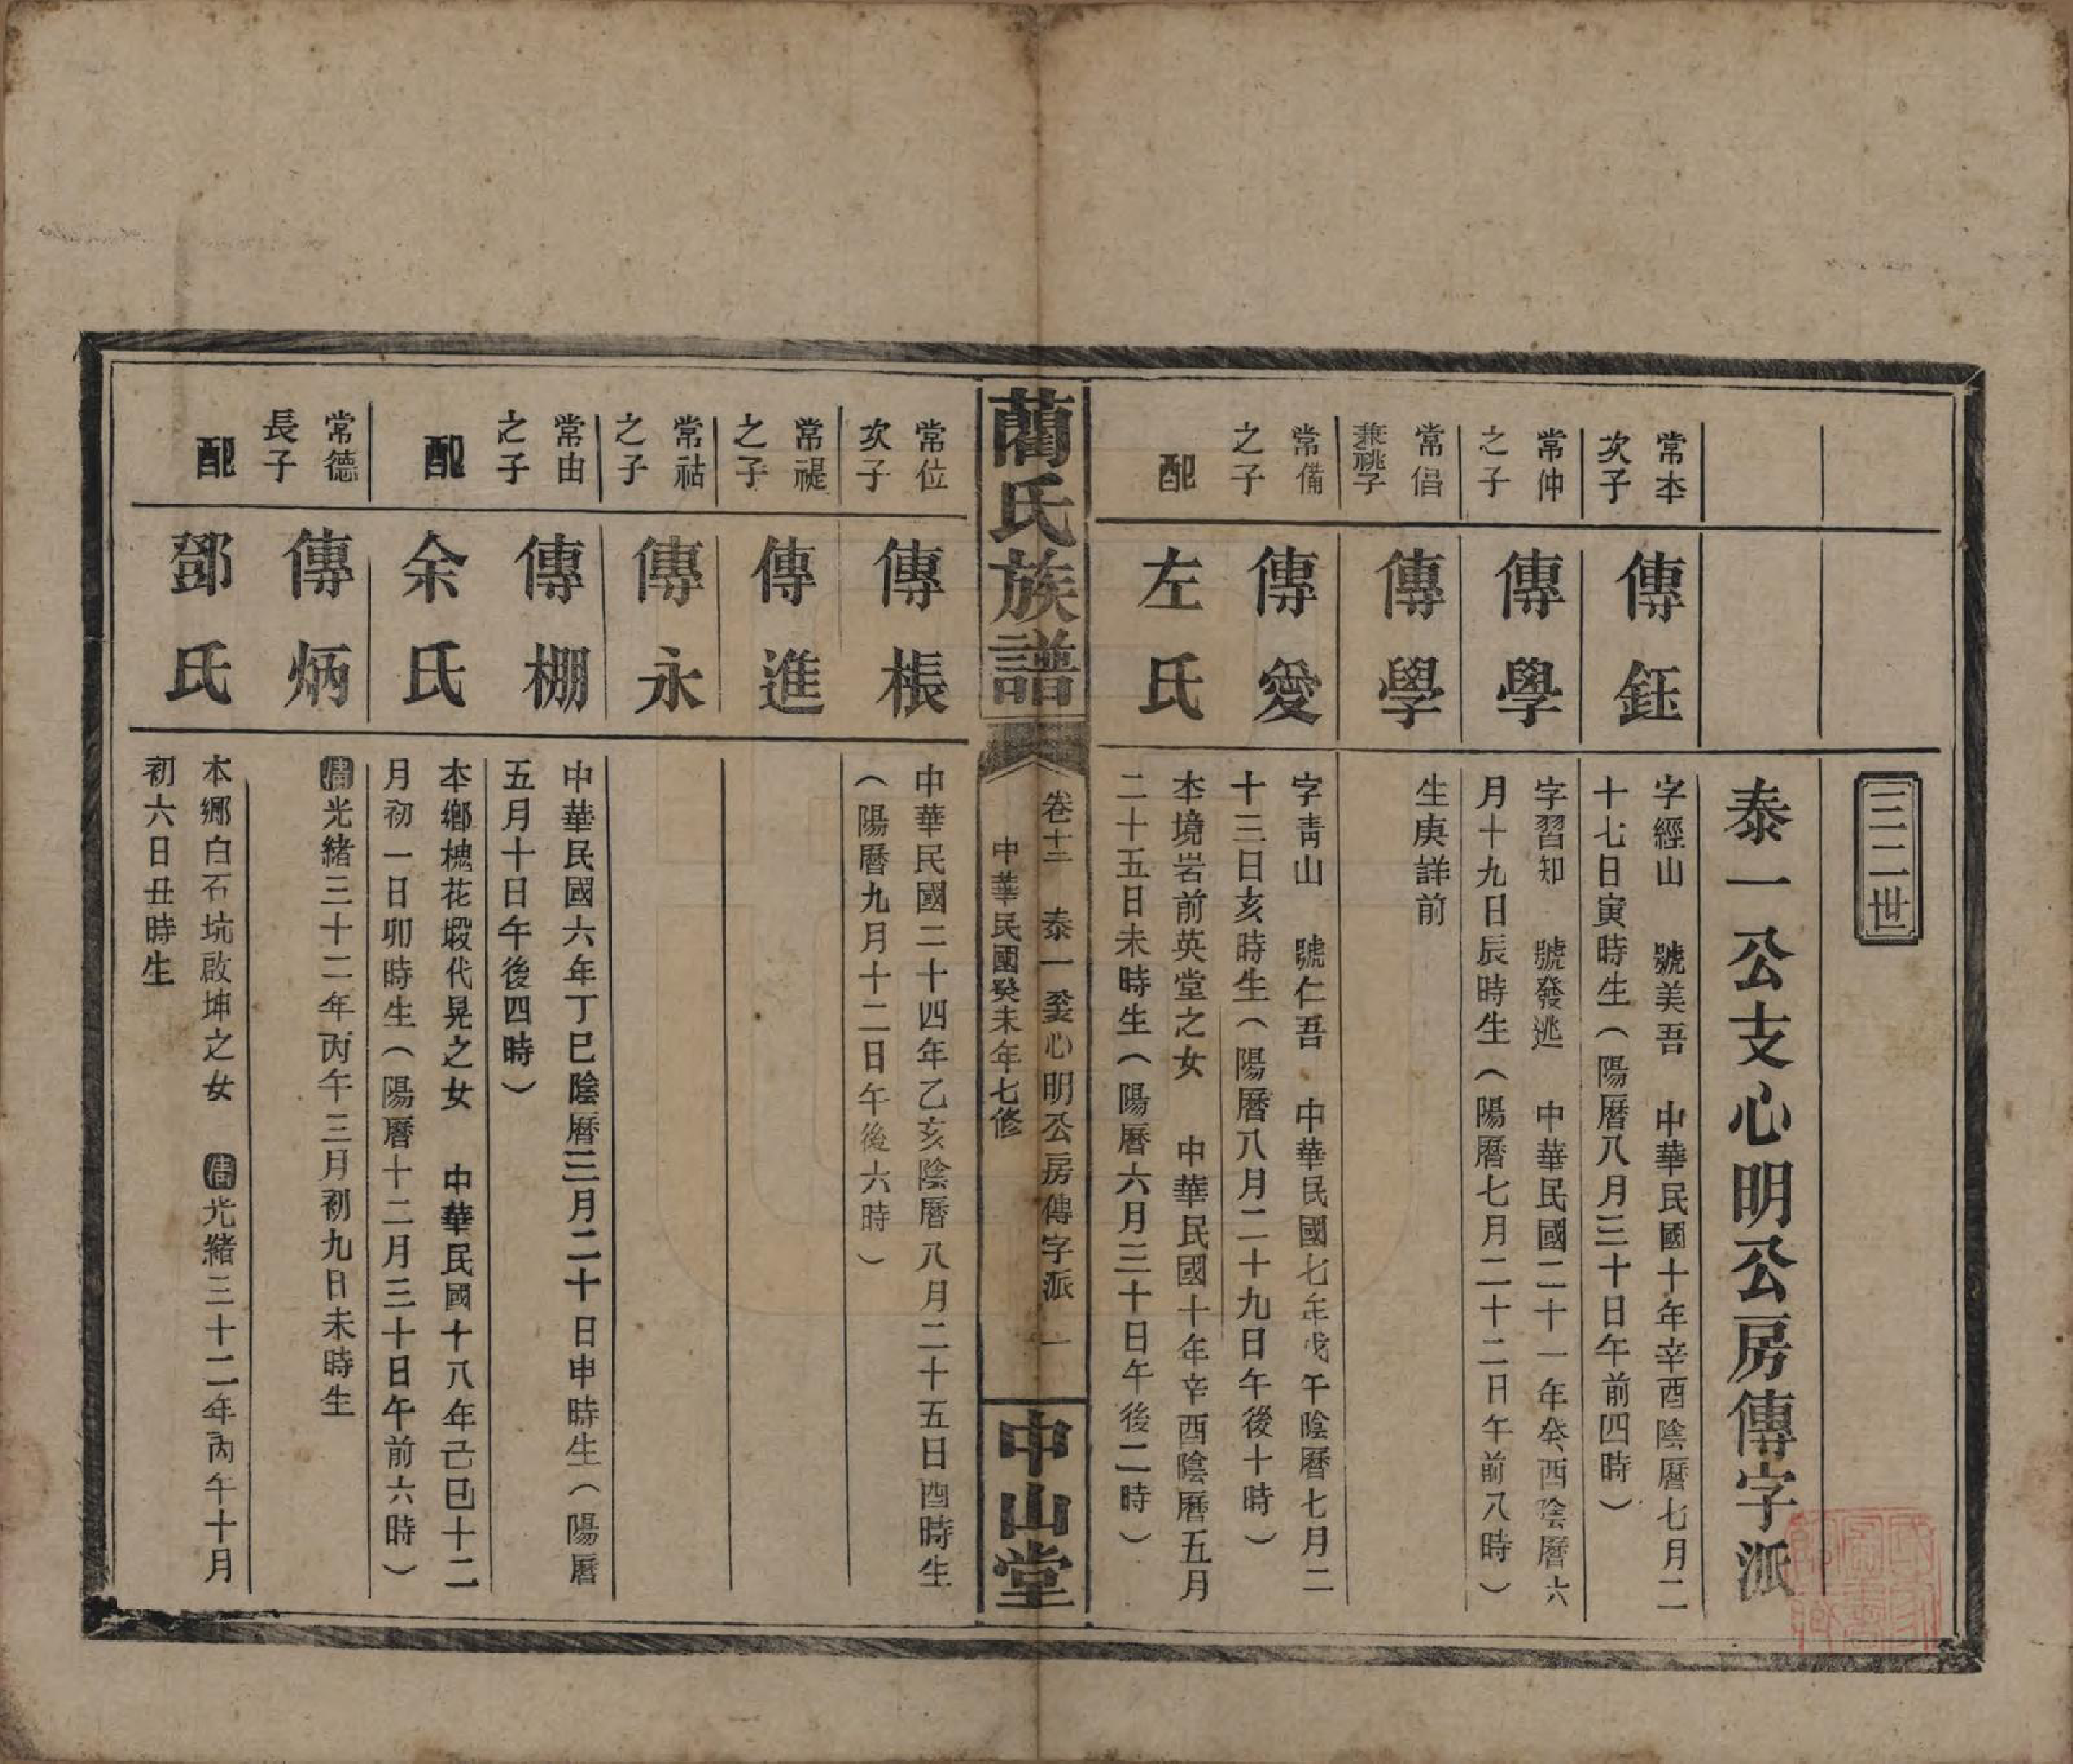 三二世
泰一公支心明公房傳字派
常本
次子
傳鈺
字經山　號美吾　中華民國十年辛酉陰曆七月二
十七日寅時生（陽曆八月三十日午前四時）
常仲
之子
傳學
字習知　號發逃　中華民國二十一年癸酉陰曆六
月十九日辰時生（陽曆七月二十二日午前八時）
常倡
兼祧子
傳學
生庚詳前
常備
之子
傳愛
字青山　號仁吾　中華民國七年戊午陰曆七月二
十三日亥時生（陽曆八月二十九日午後十時）
配
左氏
本境岩前英堂之女　中華民國十年辛酉陰曆五月
二十五日未時生（陽曆六月三十日午後二時）
藺氏族譜
卷十三　泰一公支心明公房傳字派　一
中華民國癸未年七修
中山堂
常位
次子
傳棖
中華民國二十四年乙亥陰曆八月二十五日酉時生
（陽曆九月十二日午後六時）
常禔
之子
傳進
常祜
之子
傳永
常由
之子
傳棚
中華民國六年丁巳陰曆三月二十日申時生（陽曆
五月十日午後四時）
配
余氏
本鄉槐花塅代晃之女　中華民國十八年己巳十二
月初一日卯時生（陽曆十二月三十日午前六時）
常德
長子
傳炳
清光緒三十二年丙午三月初九日未時生
配
鄧氏
本鄉白石坑啟坤之女　清光緒三十二年丙午十月
初六日丑時生